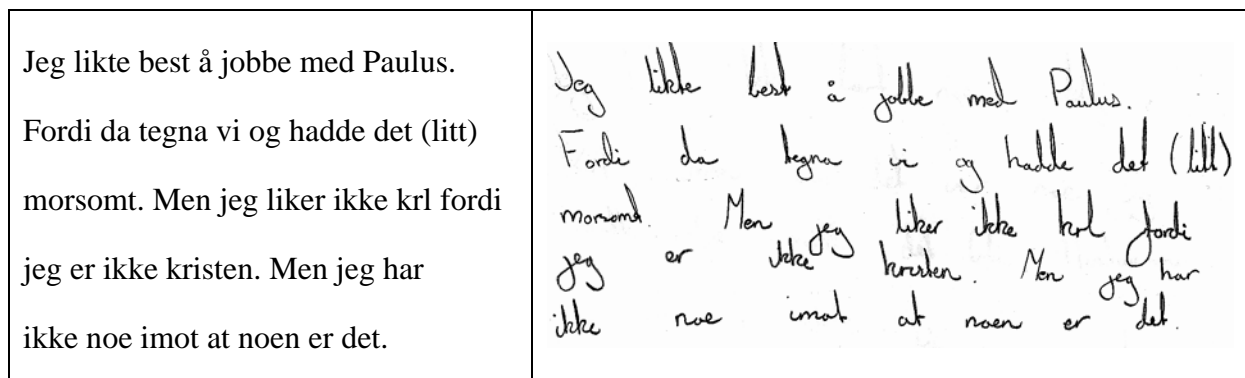 Jeg likte best å jobbe med Paulus.
Fordi da tegna vi og hadde det (litt)
morsomt. Men jeg liker ikke krl fordi
jeg er ikke kristen. Men jeg har
ikke noe imot at noen er det.
Jeg likte best å jobbe med Paulus.
Fordi da tegna vi og hadde det (litt)
morsomt. Men jeg liker ikke krl fordi
jeg er ikke kristen. Men jeg har
ikke noe imot at noen er det.